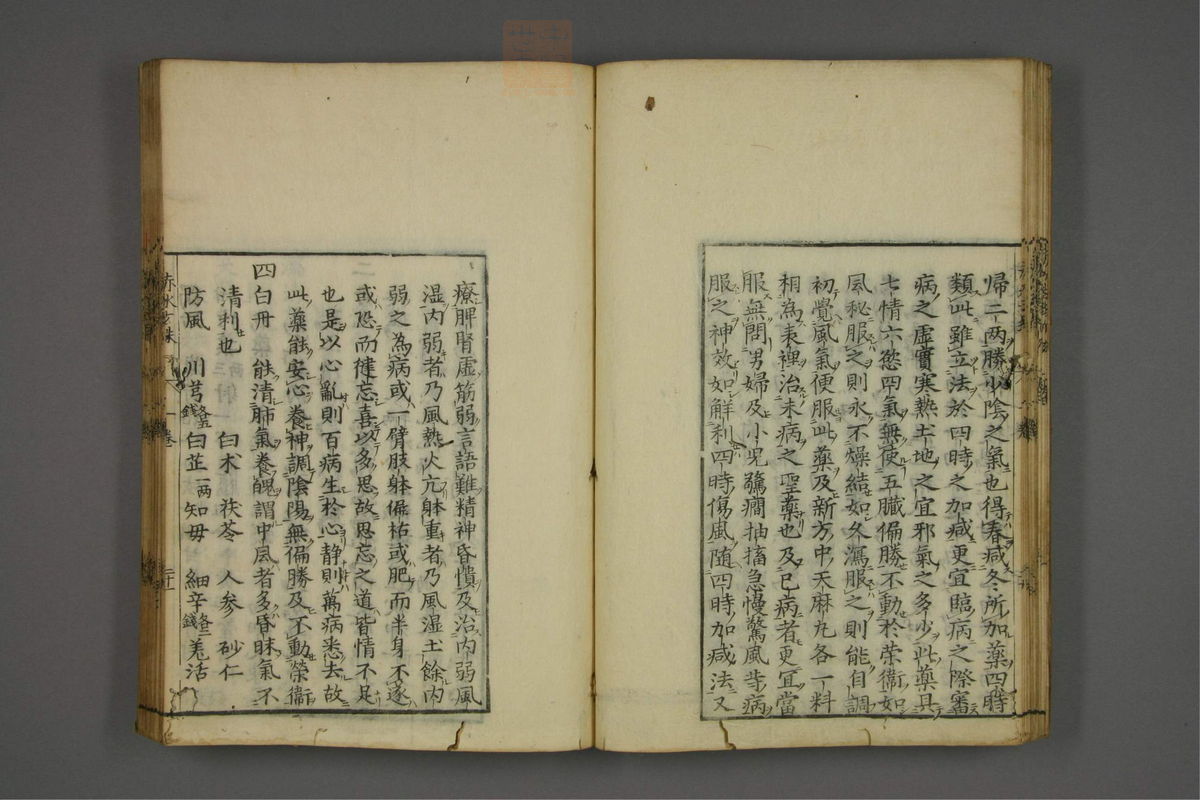 帰二两勝少陰之氣也得春減冬所加藥四時
類此雖立法於四時之加减更宜臨病之際審
病之虛實寒熱土地之宜邪氣之多少此藥具
七情六慾四氣無使五臟偏勝不動於荣衛如
風秘服之則永不燥結如久瀉服之則能自調
初覺風氣便服此藥及新方中天麻丸各一料
相為表裡治未病之聖藥也及已病者更宜當
服無問男婦及小児驚癎抽搐急慢驚風等病
服之神效如解利四時傷風随四時加减法又
療脾腎虛筋弱言語難精神昏憒及治内弱風
湿内弱者乃風熱火亢躰重者乃風湿土餘内
弱之為病或一臂肢躰偏枯或肥而半身不遂
或恐而健忘喜以多思故思忘之道皆情不足
也是以心亂則百病生於心静則萬病悉去故
此藥能安心養神調陰陽無偏勝及不動榮衛
四白丹 能清肺氣養魄謂中風者多昏昧氣不
清利也 白术 茯苓 人参 砂仁
防風 川芎各五錢 白芷一两 知母 細辛各二錢 羗活
赤水玄珠 一卷